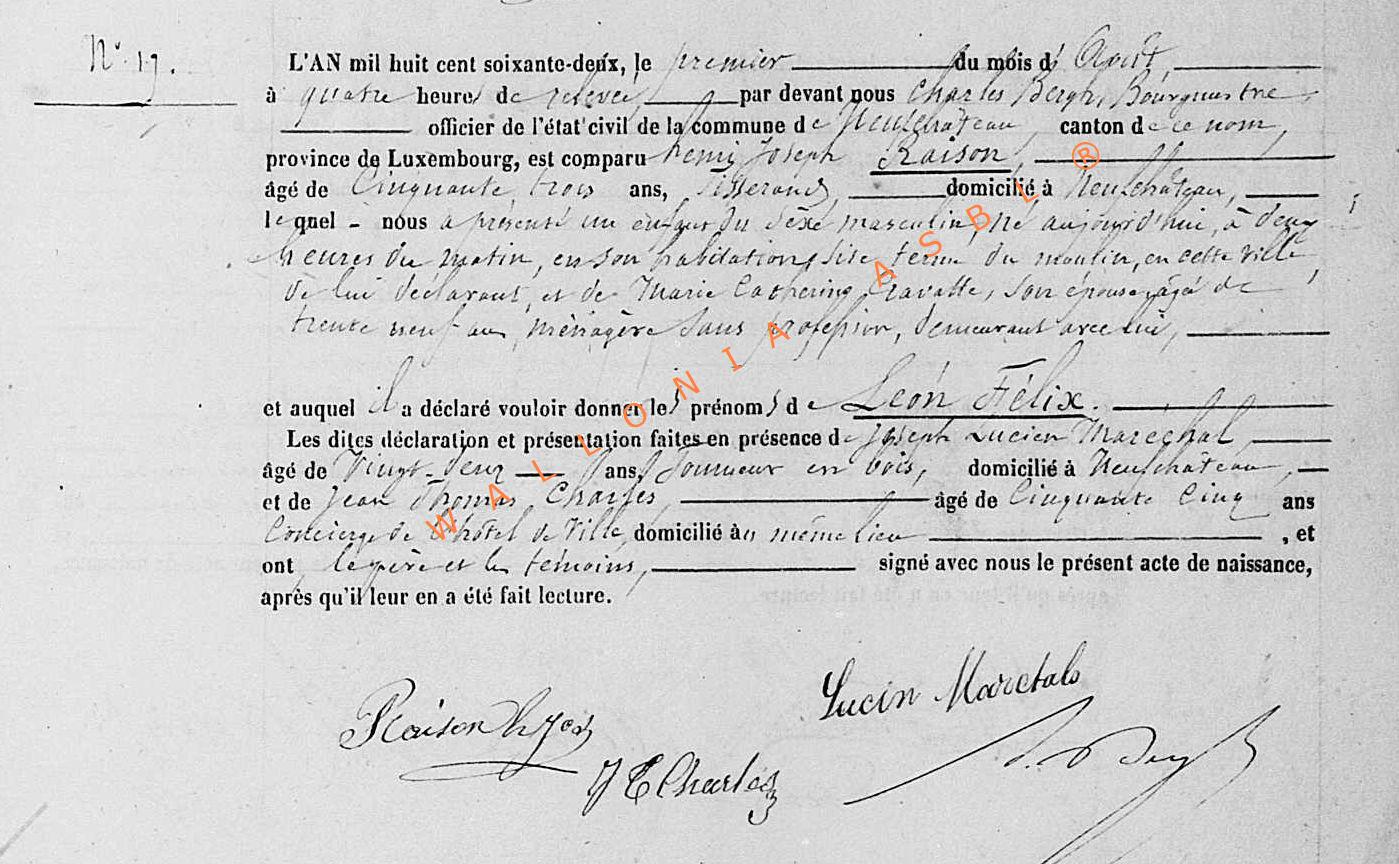 N° 19.
L'AN mil huit cent soixante-deux, le premier du mois d' Août,
à quatre heures de relevée, par devant nous Charles Bergh, Bourgmestre,
officier de l'état civil de la commune de Neufchâteau, canton de ce nom,
province de Luxembourg, est comparu henry Joseph Raison,
âgé de Cinquante trois ans, Tisserand, domicilié à Neufchâteau,
lequel - nous a présenté un enfant du sèxe masculin, né aujourd'hui, à deux
heures du matin, en son habitation, sise terme du moulin, en cette ville,
de lui déclarant, et de Marie Catherine Gravatte, son épouse, âgée de
trente neuf ans, ménagère sans profession, demeurant avec lui,
et auquel il a déclaré vouloir donner les prénoms de Léon Félix.
Les dites déclaration et présentation faites en présence de Joseph Lucien Maréchal,
âgé de Vingt-deux ans, Tourneur en bois, domicilié à Neufchâteau,
et de Jean Thomas Charles, âgé de Cinquante Cinq ans
Concierge de l'hôtel de Ville, domicilié au même lieu , et
ont le père et les témoins, signé avec nous le présent acte de naissance,
après qu'il leur en a été fait lecture.
Lucin Marechals
Raison h Jos
J T Charles
WALLONIA ASBL ®